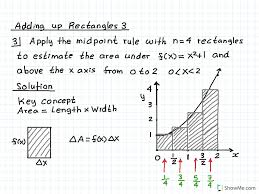 Adding up Rectangles 3
3| Apply the midpoint rule with n=4 rectangles
to estimate the area under f(x)=x²+1 and
above the x axis from 0 to 2 0<x<2
Solution
Key concept
Area = Length × Width
f(x)
ΔA = f(x)Δx
Δx
y
4
3
2
1
0 1/2 1 3/2 2 x
1/4 3/4 5/4 7/4
ShowMe.com